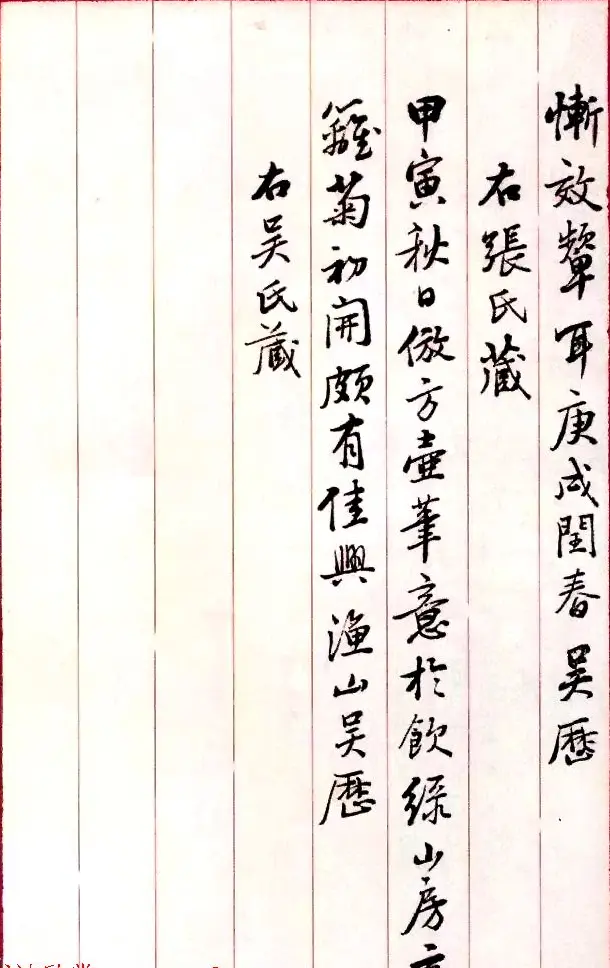 慚效顰耳庚戌閏春吳歷
右張氏藏
甲寅秋日倣方壺筆意於飲綠山房
籬菊初開頗有佳興漁山吳歷
右吳氏藏